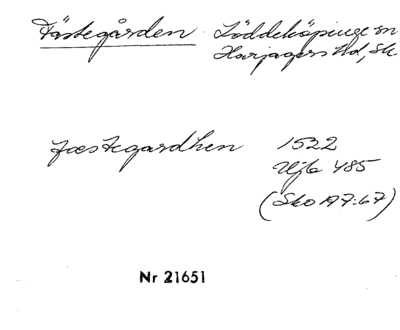 Fästegården Löddeköpinge sn
Harjagers Hd, Sk.
fæstegardhen 1522
Ufb 485
(Sko A 7:67)
Nr 21651